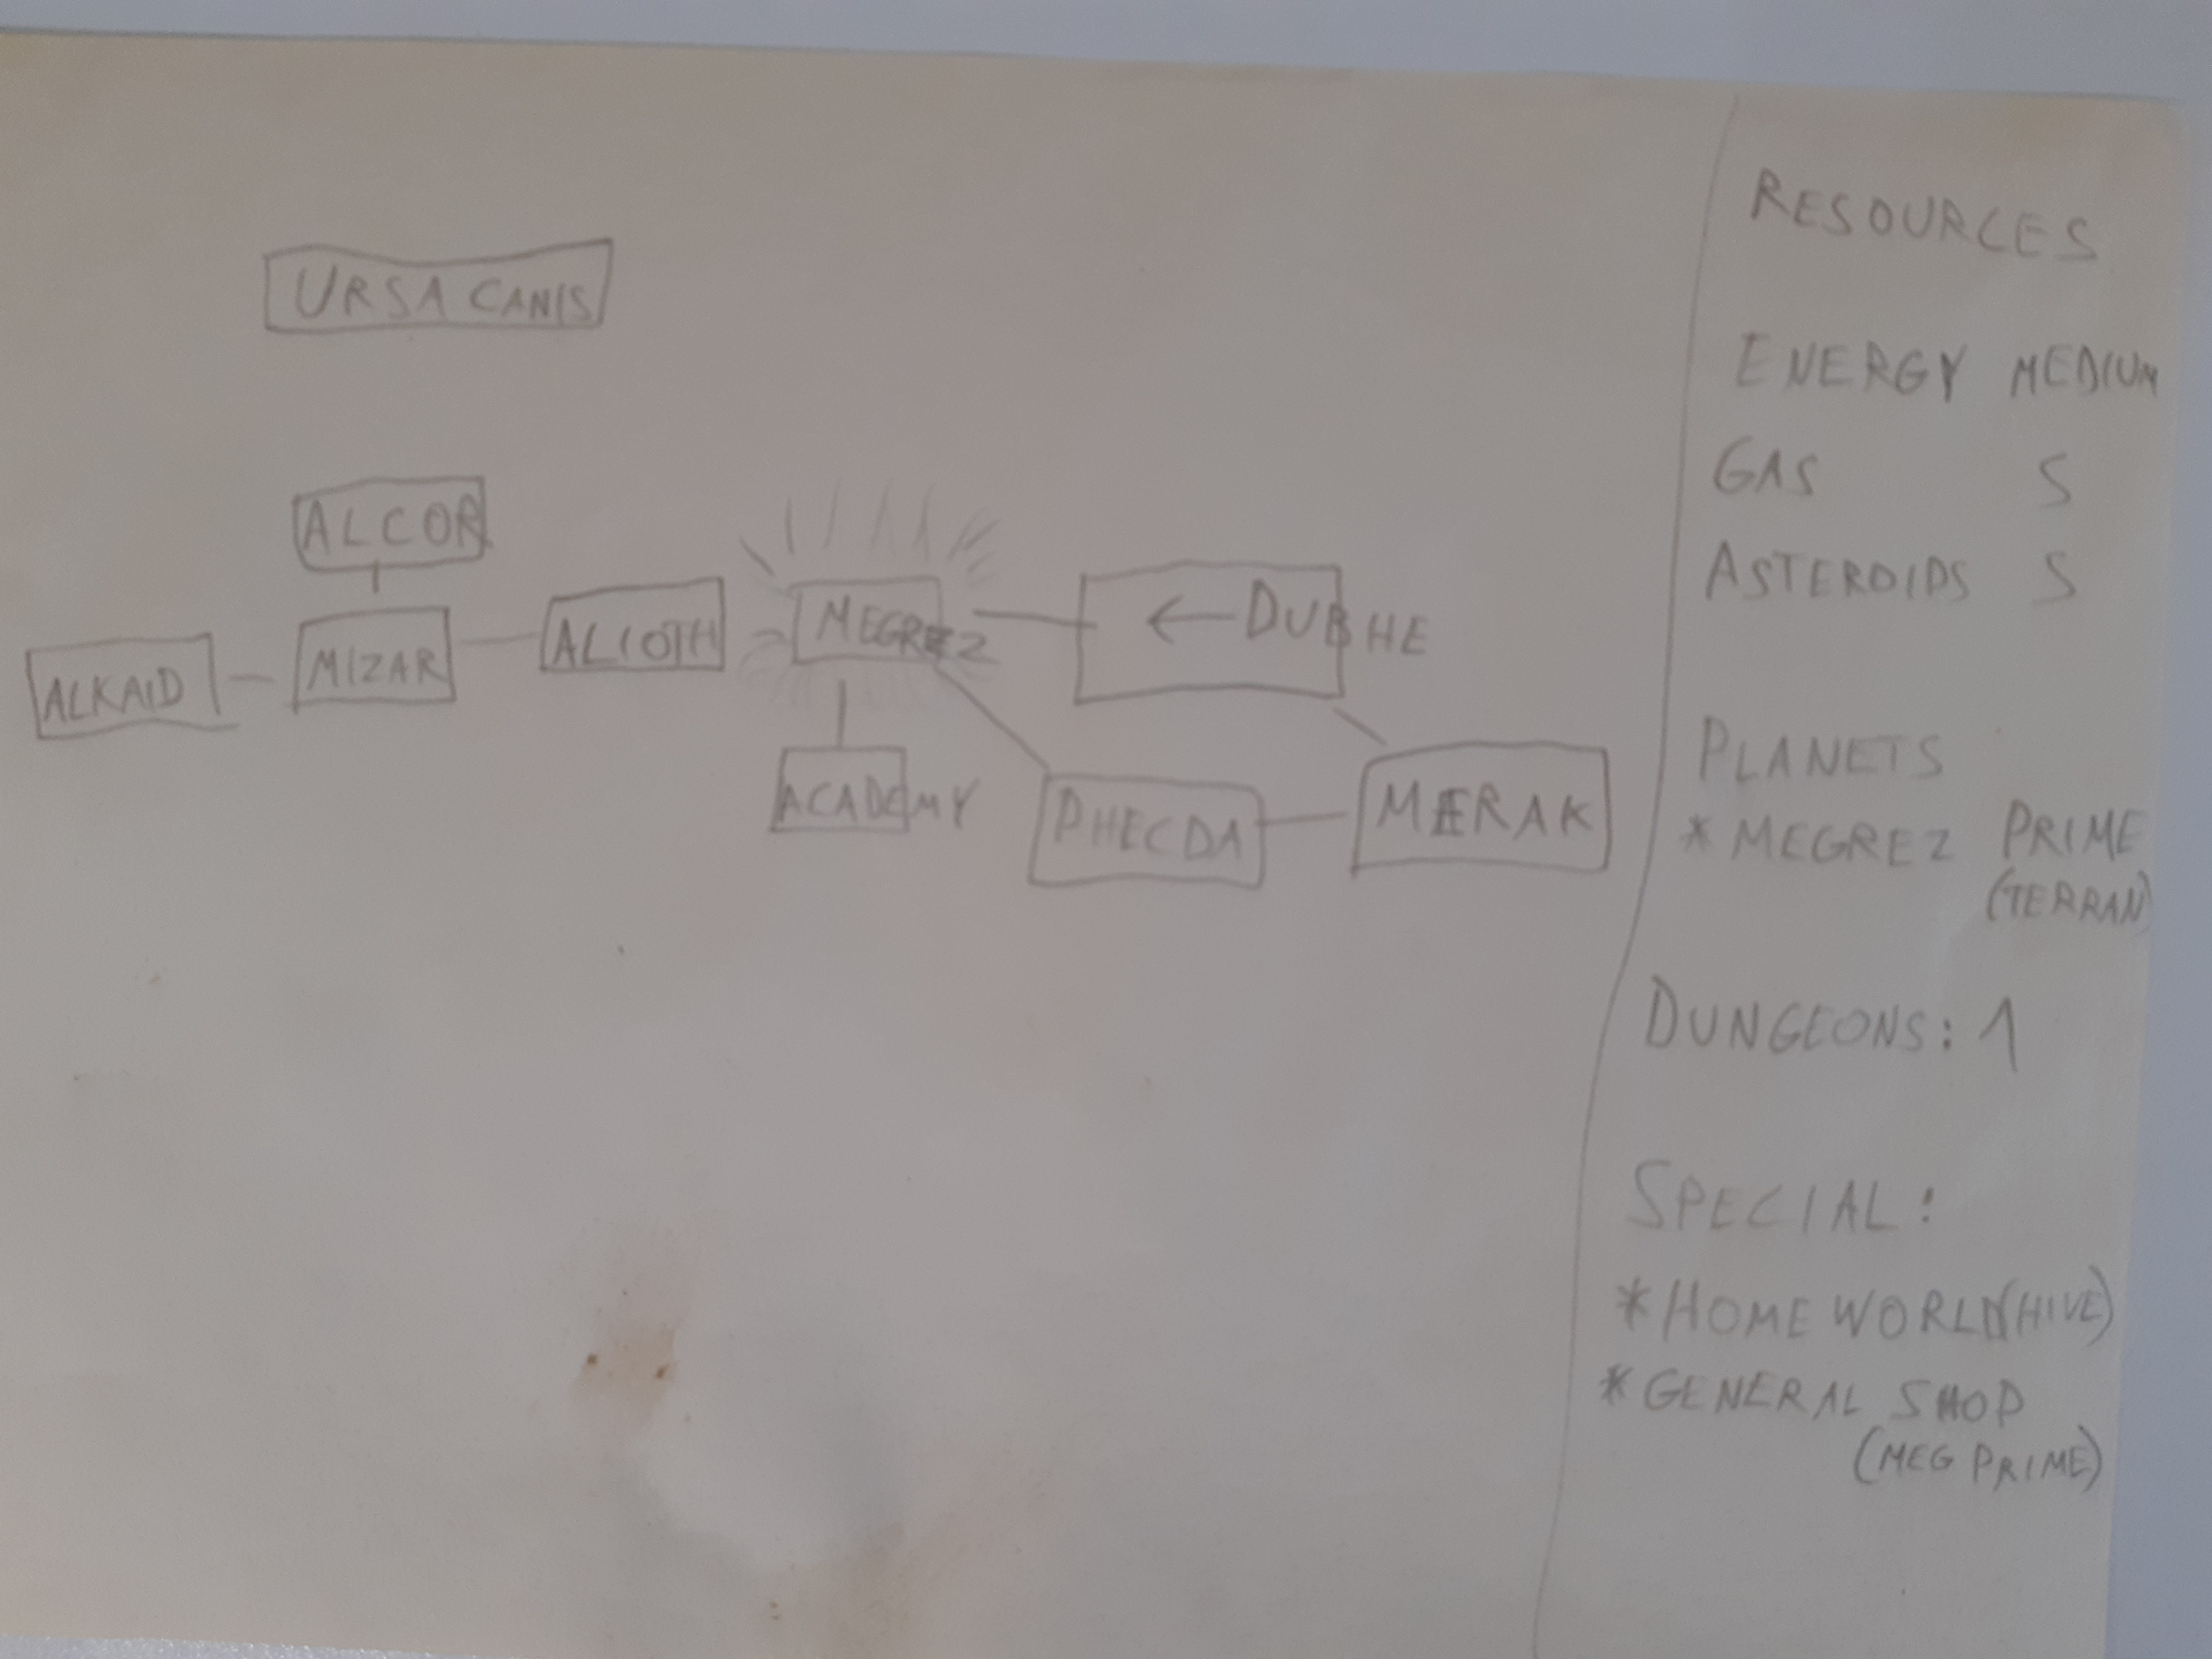 URSA CANIS
ALCOR
ALKAID
MIZAR
ALIOTH
MEGREZ
← DUBHE
ACADEMY
PHECDA
MERAK
RESOURCES
ENERGY MEDIUM
GAS S
ASTEROIDS S
PLANETS
* MEGREZ PRIME
(TERRAN)
DUNGEONS: 1
SPECIAL:
* HOME WORLD (HIVE)
* GENERAL SHOP
(MEG PRIME)